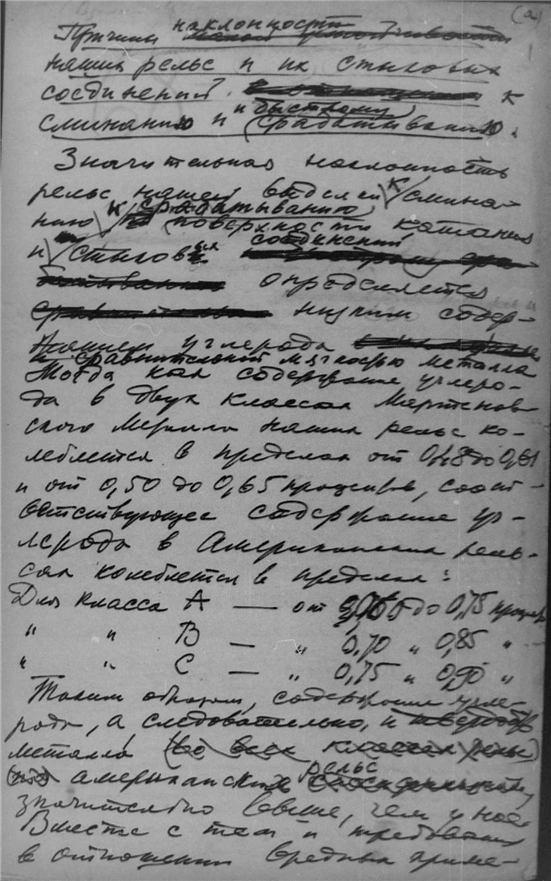 (а)
Причины наклонности
наших рельс и их стыковых
соединений к
сминанию и быстрому срабатыванию.
Значительная наклонность
рельс нашей выделки к смина-
нию, к срабатыванию поверхности катания
и стыковых соединений
определяется
низким содер-
жанием углерода
и сравнительной мягкостью металла
Тогда как содержание углеро-
да в двух классах Мартенов-
ского металла наших рельс ко-
леблется в пределах от 0,48 до 0,61
и от 0,50 до 0,65 процентов, соот-
ветствующее содержание уг-
лерода в Американских рель-
сах колеблется в пределах:
Для класса А — от 0,65 до 0,75 процен
" " В — " 0,70 " 0,85 "
" " С — " 0,75 " 0,90 "
Таким образом, содержание угле-
рода, а следовательно, и твердость
металла (во всех классах рельс)
американских рельс
значительно выше, чем у нас
Вместе с тем и требования
в отношении вредных приме-